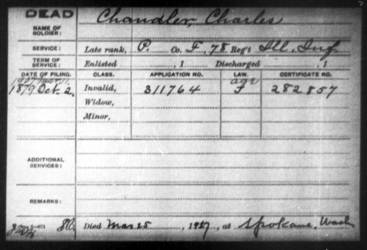 DEAD
NAME OF SOLDIER: Chandler, Charles
SERVICE: Late rank, P. Co. F, 78 Reg't Ill. Inf.
TERM OF SERVICE: Enlisted , 1 Discharged , 1
DATE OF FILING. CLASS. APPLICATION NO. LAW. CERTIFICATE NO.
age
1879 Oct. 2. Invalid, 311764 F 282857
Widow,
Minor,
ADDITIONAL SERVICES:
REMARKS:
Ill. Died Mar 25, 1927, at Spokane, Wash